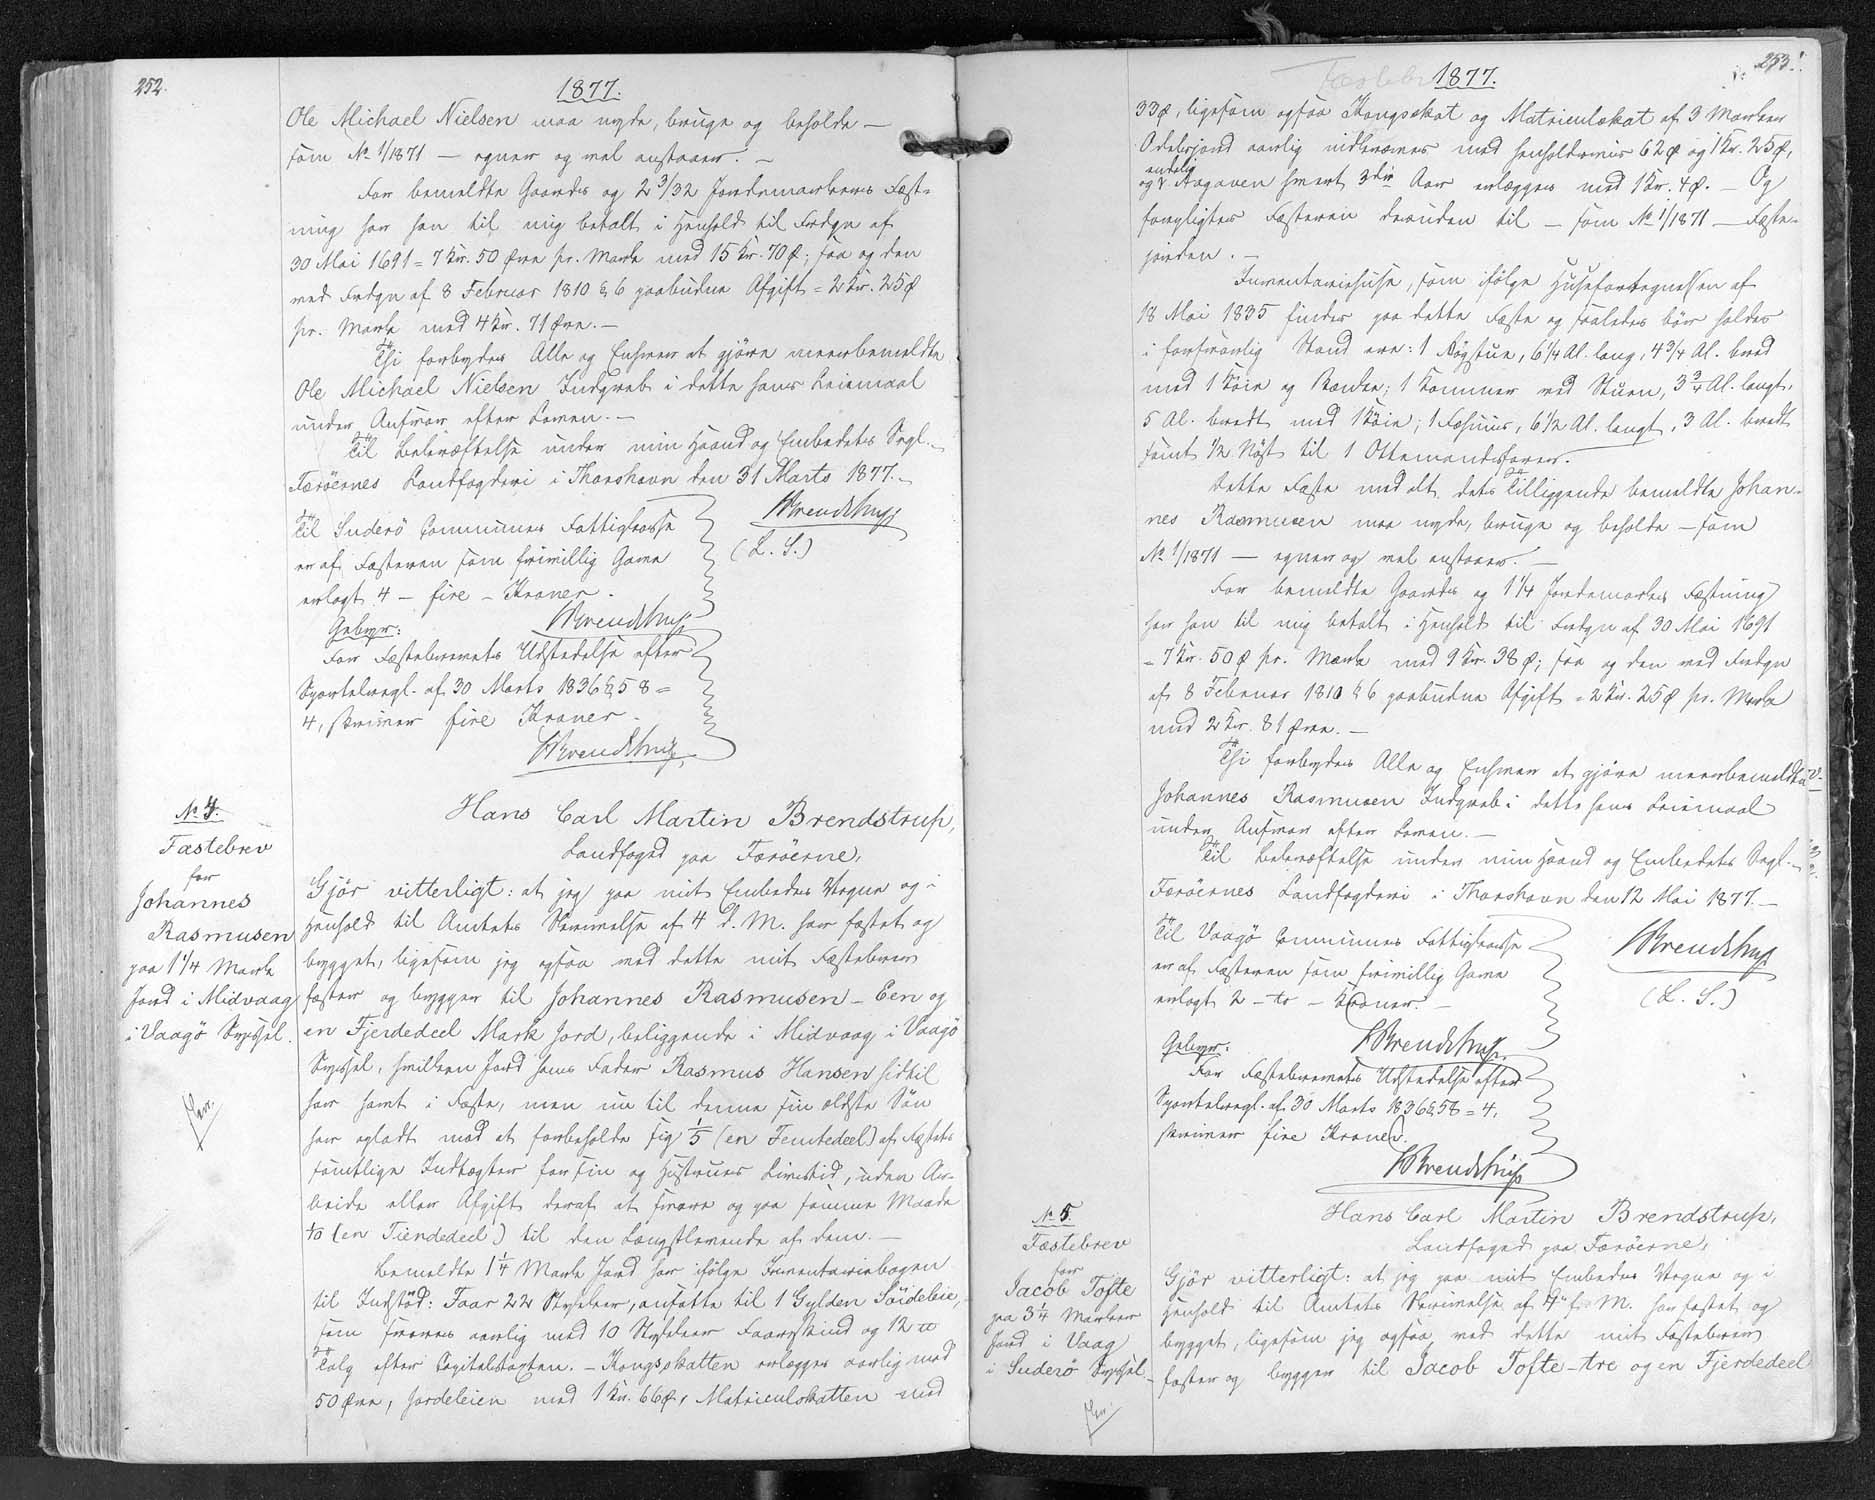 252.
1877.
Ole Michael Nielsen maa nyde, bruge og beholde —
som No 1/1871 — egner og vel anstaaer. —
For bemeldte Gaardes og 2 3/32 Jordemarkers Fæst-
ning har han til mig betalt i Henhold til Frdgn af
30 Mai 1691 = 7 Kr. 50 Øre pr. Mark med 15 Kr. 70 Ø; saa og den
ved Frdgn af 8 Februar 1810 § 6 paabudne Afgift = 2 Kr. 25 Ø
pr. Mark med 4 Kr. 71 Øre. —
Thi forbydes Alle og Enhver at gjöre meerbemeldte
Ole Michael Nielsen Indgreb i dette hans Leiemaal
under Ansvar efter Loven. —
Til Bekræftelse under min Haand og Embedets Segl. —
Færöernes Landfogderi i Thorshavn den 31 Marts 1877. —
HBrendstrup
(L. S.)
Til Suderö Communes Fattigkasse
er af Fæsteren som frivillig Gave
erlagt 4 — fire — Kroner.
HBrendstrup
Gebyr:
For Fæstebrevets Udstedelse efter
Sportelregl. af 30 Marts 1836 § 58 =
4, skriver fire Kroner.
HBrendstrup
No 4.
Fæstebrev
for
Johannes
Rasmusen
paa 1 1/4 Mark
Jord i Midvaag
i Vaagö Syssel.
Hans Carl Martin Brendstrup,
Landfoged paa Færöerne,
Gjör vitterligt: at jeg paa mit Embedes Vegne og i
Henhold til Amtets Skrivelse af 4 d. M. har fæstet og
bygget, ligesom jeg ogsaa med dette mit Fæstebrev
fæster og bygger til Johannes Rasmusen — Een og
en Fjerdedeel Mark Jord, beliggende i Midvaag i Vaagö
Syssel, hvilken Jord hans Fader Rasmus Hansen hidtil
har havt i Fæste, men nu til denne sin ældste Sön
har opladt mod at forbeholde sig 1/5 (en Femtedeel) af Fæstets
samtlige Indtægter for sin og Hustrues Livstid, uden Ar-
beide eller Afgift deraf at svare og paa samme Maade
1/10 (en Tiendedeel) til den Længstlevende af dem. —
Bemeldte 1 1/4 Mark Jord har ifölge Inventariebogen
til Indstöd: Faar 22 Stykker, ansatte til 1 Gylden Söideleie,
som svares aarlig med 10 Stykker Faareskind og 12 ℔
Talg efter Capitelstaxten. — Kongsskatten erlægges aarlig med
50 Øre, Jordeleien med 1 Kr. 66 Ø, Matriculskatten med
253.
1877.
33 Ø, ligesom ogsaa Kongsskat og Matriculskat af 3 Marker
Odelsjord aarlig udredes med henholdsvis 62 Ø og 1 Kr. 25 Ø,
endelig
og Augaven hvert 3die Aar erlægges med 1 Kr. 4 Ø. — Og
forpligter Fæsteren desuden til — som No 1/1871 — Fæste-
jorden. —
Inventariehuse, som ifölge Husefortegnelsen af
18 Mai 1835 findes paa dette Fæste og saaledes bör holdes
i forsvarlig Stand ere: 1 Rögstue, 6 1/4 Al. lang, 4 3/4 Al. bred
med 1 Köie og Bænke; 1 Kammer ved Stuen, 3 3/4 Al. langt,
5 Al. bredt med 1 Köie; 1 Fæhuus, 6 1/2 Al. langt, 3 Al. bredt
samt 1/2 Nöst til 1 Ottemandsfarer.
Dette Fæste med alt dets Tilliggende bemeldte Johan-
nes Rasmusen maa nyde, bruge og beholde — som
No 1/1871 — egner og vel anstaaer. —
For bemeldte Gaardes og 1 1/4 Jordemarks Fæstning
har han til mig betalt i Henhold til Frdgn af 30 Mai 1691
= 7 Kr. 50 Ø pr. Mark med 9 Kr. 38 Ø; saa og den ved Frdgn
af 8 Februar 1810 § 6 paabudne Afgift = 2 Kr. 25 Ø pr. Mark
med 2 Kr. 81 Øre. —
Thi forbydes Alle og Enhver at gjöre meerbemeldte
Johannes Rasmusen Indgreb i dette hans Leiemaal
under Ansvar efter Loven. —
Til Bekræftelse under min Haand og Embedets Segl. —
Færöernes Landfogderi i Thorshavn den 12 Mai 1877. —
HBrendstrup
(L. S.)
Til Vaagö Communes Fattigkasse
er af Fæsteren som frivillig Gave
erlagt 2 — to — Kroner. —
HBrendstrup
Gebyr:
For Fæstebrevets Udstedelse efter
Sportelregl. af 30 Marts 1836 § 58 = 4,
skriver fire Kroner.
HBrendstrup
No 5.
Fæstebrev
for
Jacob Tofte
paa 3 1/4 Marker
Jord i Vaag
i Suderö Syssel.
Hans Carl Martin Brendstrup,
Landfoged paa Færöerne,
Gjör vitterligt: at jeg paa mit Embedes Vegne og i
Henhold til Amtets Skrivelse af 4 f. M. har fæstet og
bygget, ligesom jeg ogsaa med dette mit Fæstebrev
fæster og bygger til Jacob Tofte — tre og en Fjerdedeel